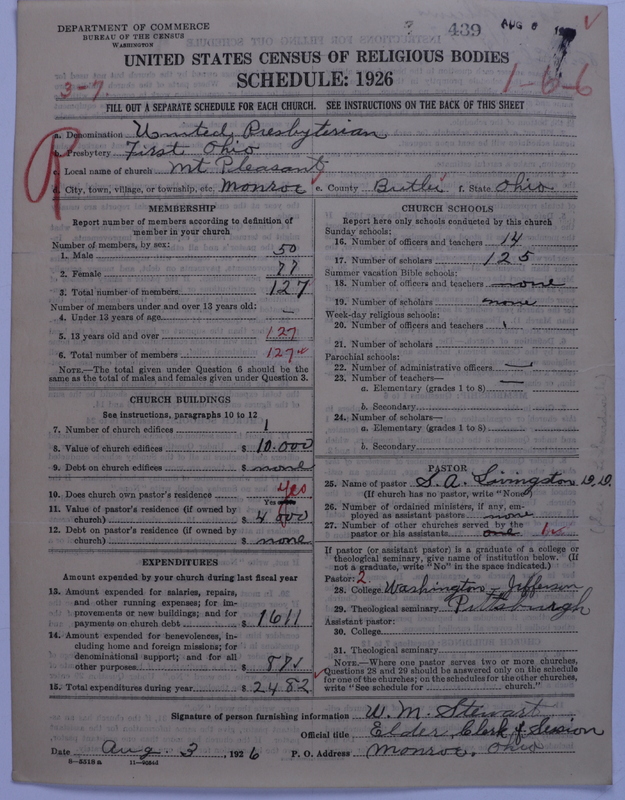 DEPARTMENT OF COMMERCE
BUREAU OF THE CENSUS
WASHINGTON
? 439 AUG 6
UNITED STATES CENSUS OF RELIGIOUS BODIES
SCHEDULE: 1926
3-7. 1-6-6
FILL OUT A SEPARATE SCHEDULE FOR EACH CHURCH. SEE INSTRUCTIONS ON THE BACK OF THIS SHEET
R
a. Denomination United Presbyterian
b. Presbytery First Ohio
c. Local name of church Mt Pleasant
d. City, town, village, or township, etc. Monroe e. County Butler f. State Ohio
MEMBERSHIP
Report number of members according to definition of
member in your church
Number of members, by sex:
1. Male 50
2. Female 77
3. Total number of members 127
Number of members under and over 13 years old:
4. Under 13 years of age —
5. 13 years old and over 127
6. Total number of members 127
NOTE.—The total given under Question 6 should be the
same as the total of males and females given under Question 3.
CHURCH BUILDINGS
See instructions, paragraphs 10 to 12
7. Number of church edifices 1
8. Value of church edifices $ 10.000
9. Debt on church edifices $ none
10. Does church own pastor's residence yes
Yes
11. Value of pastor's residence (if owned by
church) $ 4000
12. Debt on pastor's residence (if owned by
church) $ none
EXPENDITURES
Amount expended by your church during last fiscal year
13. Amount expended for salaries, repairs,
and other running expenses; for im-
provements or new buildings; and for
payments on church debt $ 1611
14. Amount expended for benevolences, in-
cluding home and foreign missions; for
denominational support; and for all
other purposes $ 871
15. Total expenditures during year $ 2482
CHURCH SCHOOLS
Report here only schools conducted by this church
Sunday schools:
16. Number of officers and teachers 14
17. Number of scholars 125
Summer vacation Bible schools:
18. Number of officers and teachers none
19. Number of scholars none
Week-day religious schools:
20. Number of officers and teachers
21. Number of scholars
Parochial schools:
22. Number of administrative officers —
23. Number of teachers— —
a. Elementary (grades 1 to 8)
b. Secondary
24. Number of scholars—
a. Elementary (grades 1 to 8)
b. Secondary
PASTOR
25. Name of pastor S. A. Livingston D.D.
(If church has no pastor, write "None")
26. Number of ordained ministers, if any, em-
ployed as assistant pastors none
27. Number of other churches served by the
pastor or his assistants one
If pastor (or assistant pastor) is a graduate of a college or
theological seminary, give name of institution below. (If
not a graduate, write "No" in the space indicated.)
Pastor: 2
28. College Washington - Jefferson
29. Theological seminary Pittsburgh
Assistant pastor:
30. College
31. Theological seminary
NOTE.—Where one pastor serves two or more churches,
Questions 28 and 29 should be answered only on the schedule
for one of the churches; on the schedules for the other churches,
write "See schedule for church."
Signature of person furnishing information W. M. Stewart
Official title Elder, Clerk of Session
Date Aug. 3, 1926 P. O. Address Monroe, Ohio
8—5318a 11—9054d